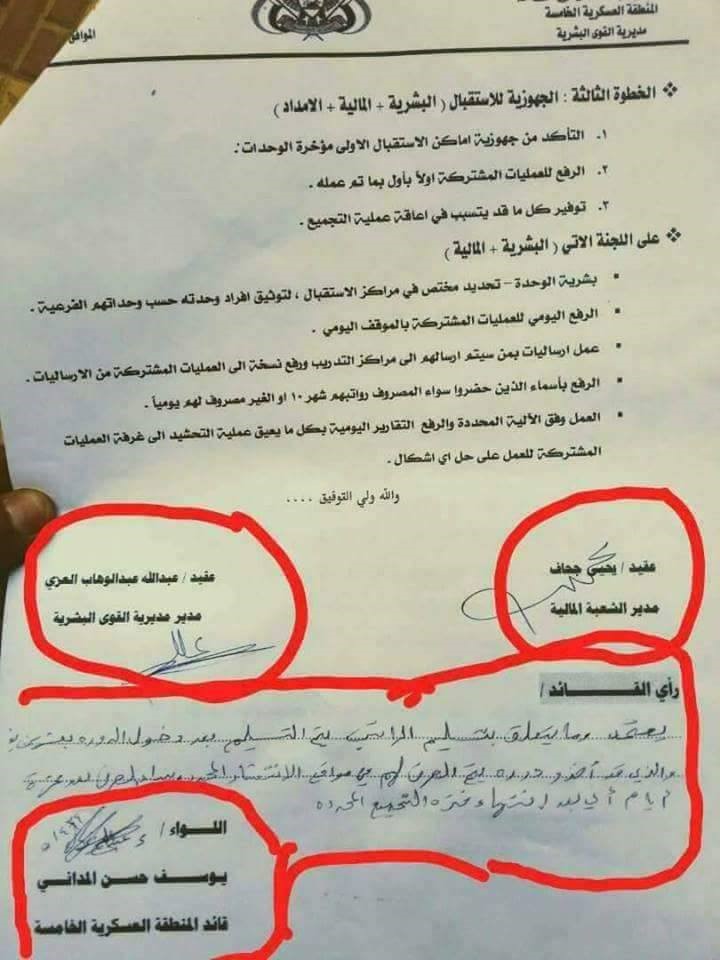 المنطقة العسكرية الخامسة
مديرية القوى البشرية
الموافق
❖ الخطوة الثالثة : الجهوزية للاستقبال ( البشرية + المالية + الامداد )
١. التأكد من جهوزية اماكن الاستقبال الاولى مؤخرة الوحدات .
٢. الرفع للعمليات المشتركة اولاً بأول بما تم عمله .
٣. توفير كل ما قد يتسبب في اعاقة عملية التجميع .
❖ على اللجنة الاتي ( البشرية + المالية )
▪ بشرية الوحدة – تحديد مختص في مراكز الاستقبال ، لتوثيق افراد وحدته حسب وحداتهم الفرعية .
▪ الرفع اليومي للعمليات المشتركة بالموقف اليومي .
▪ عمل ارساليات بمن سيتم ارسالهم الى مراكز التدريب ورفع نسخة الى العمليات المشتركة من الارساليات .
▪ الرفع بأسماء الذين حضروا سواء المصروف رواتبهم شهر ١٠ او الغير مصروف لهم يومياً .
▪ العمل وفق الألية المحددة والرفع التقارير اليومية بكل ما يعيق عملية التحشيد الى غرفة العمليات
المشتركة للعمل على حل اي اشكال .
والله ولي التوفيق ....
عقيد / يحيى جحاف
مدير الشعبة المالية
عقيد / عبدالله عبدالوهاب العزي
مدير مديرية القوى البشرية
رأي القـــــــائد /
يعتمد وما يتعلق بتسليم الراتب يتم التسليم بعد دخول الدورة بعشرين
والذي قد أخذو دوره يتم الصرف لهم في مواقع الانتشار المحدد
ايام أي بعد انتهاء فتره التجميع المحدده
اللــــواء /
يوسف حسن المداني
قائد المنطقة العسكرية الخامسة